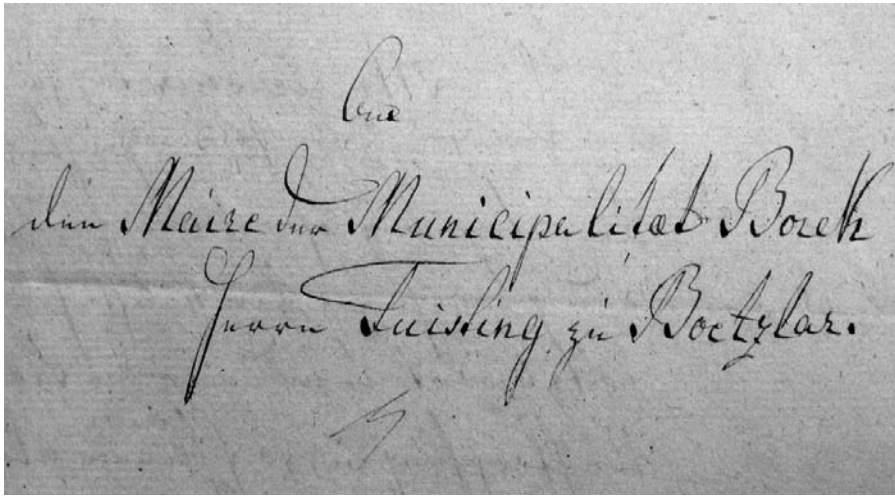 An
den Maire der Municipalitæt Bork
Herrn Tuisting zu Boetzlar.